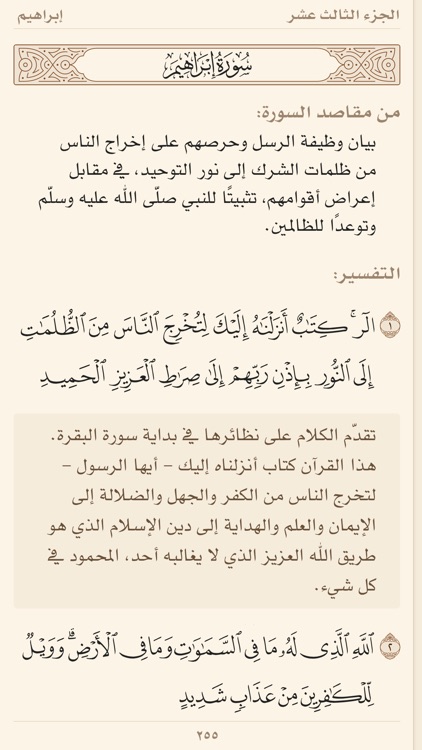 الجزء الثالث عشر
إبراهيم
سُورَةُ إِبْرَاهِيم
من مقاصد السورة:
بيان وظيفة الرسل وحرصهم على إخراج الناس
من ظلمات الشرك إلى نور التوحيد، في مقابل
إعراض أقوامهم، تثبيتًا للنبي صلّى الله عليه وسلّم
وتوعدًا للظالمين.
التفسير:
١ الٓرۚ كِتَٰبٌ أَنزَلْنَٰهُ إِلَيْكَ لِتُخْرِجَ ٱلنَّاسَ مِنَ ٱلظُّلُمَٰتِ
إِلَى ٱلنُّورِ بِإِذْنِ رَبِّهِمْ إِلَىٰ صِرَٰطِ ٱلْعَزِيزِ ٱلْحَمِيدِ
تقدّم الكلام على نظائرها في بداية سورة البقرة.
هذا القرآن كتاب أنزلناه إليك - أيها الرسول -
لتخرج الناس من الكفر والجهل والضلالة إلى
الإيمان والعلم والهداية إلى دين الإسلام الذي هو
طريق الله العزيز الذي لا يغالبه أحد، المحمود في
كل شيء.
٢ ٱللَّهِ ٱلَّذِى لَهُۥ مَا فِى ٱلسَّمَٰوَٰتِ وَمَا فِى ٱلْأَرْضِۗ وَوَيْلٌ
لِّلْكَٰفِرِينَ مِنْ عَذَابٍ شَدِيدٍ
٢٥٥